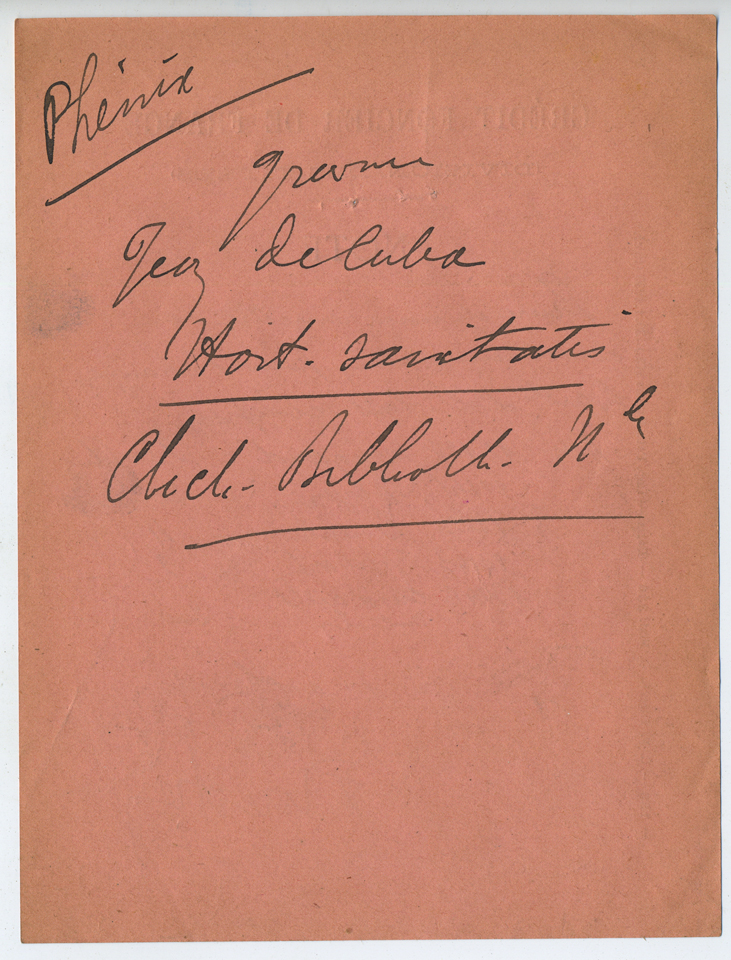 Phénix
gravure
Jea de Cuba
Hort. sanitatis
Clich. Biblioth. Nle